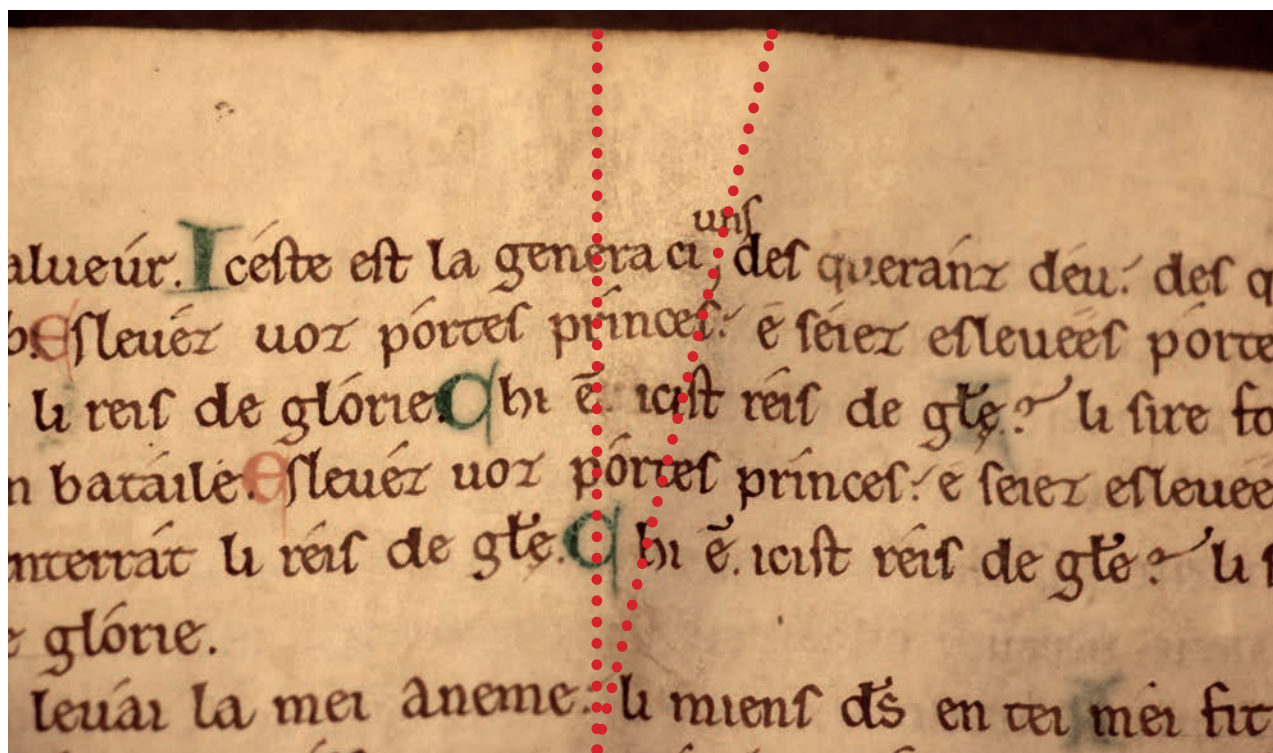 uns
alueúr. Icéste est la generaci, des queranz déu: des q
Eslevéz uoz pórtes prínces: é séiez esleuées pórte
li reis de glórie. Chi ē. icist réis de gl̄ę? li sire fo
n batáilé. Esleuéz uoz pórtes prínces: é seiez esleuee
nterrát li réis de gl̄ę. Chi ē. icist réis de gl̄e? li s
e glórie.
leuái la mei aneme: li miens d̄s en tei mei fit